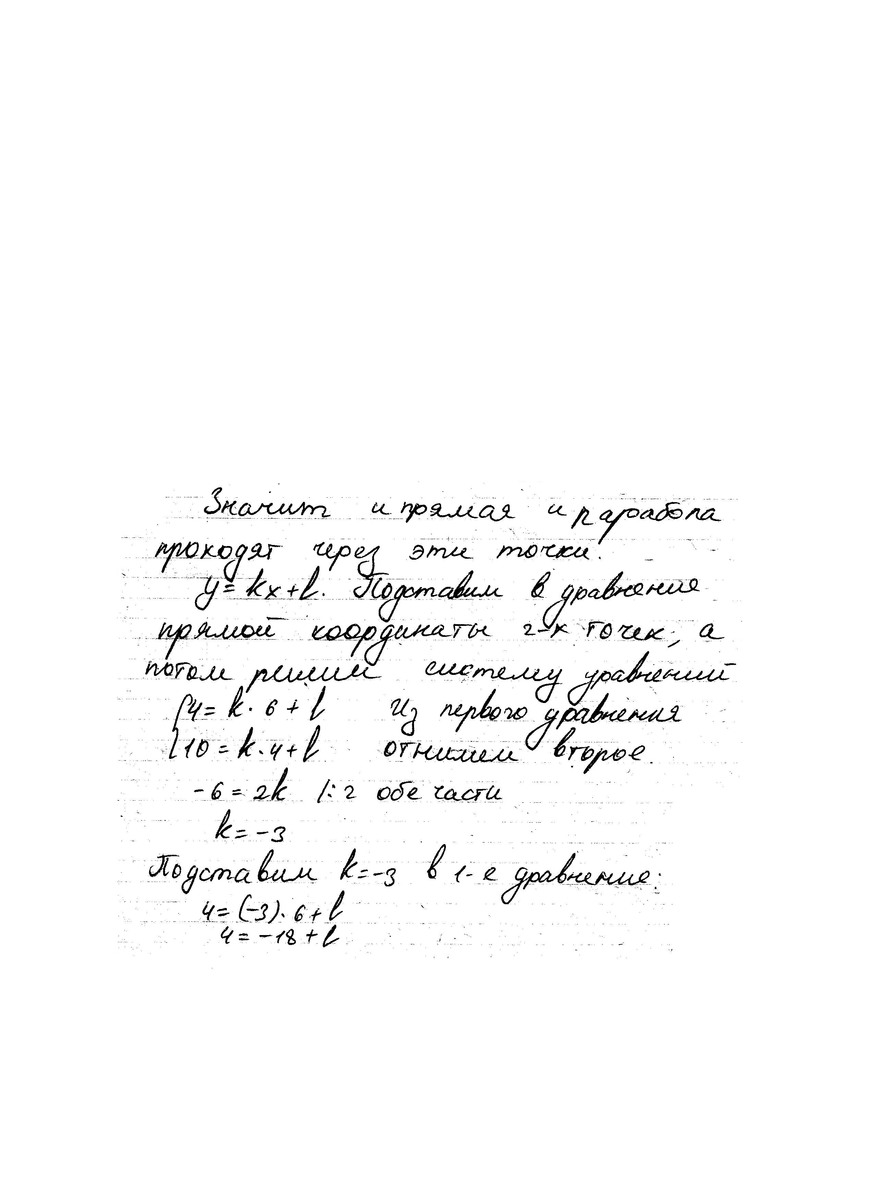 Значит и прямая и парабола
проходят через эти точки.
y = kx + l. Подставим в уравнение
прямой координаты 2-х точек, а
потом решим систему уравнений
{4 = k · 6 + l Из первого уравнения
{10 = k · 4 + l отнимем второе.
-6 = 2k |: 2 обе части
k = -3
Подставим k = -3 в 1-е уравнение:
4 = (-3) · 6 + l
4 = -18 + l